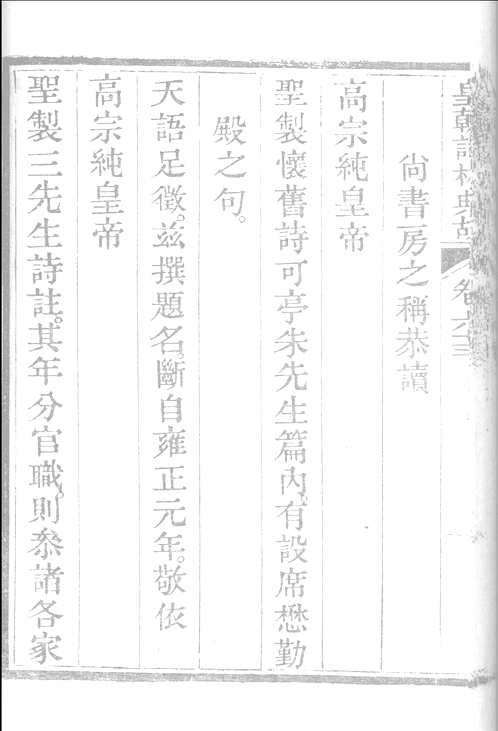 皇朝詞林典故 卷六十三
尙書房之稱恭讀
高宗純皇帝
聖製懷舊詩可亭朱先生篇內有設席懋勤
殿之句。
天語足徵。兹撰題名。斷自雍正元年。敬依
高宗純皇帝
聖製三先生詩註。其年分官職。則叅諸各家